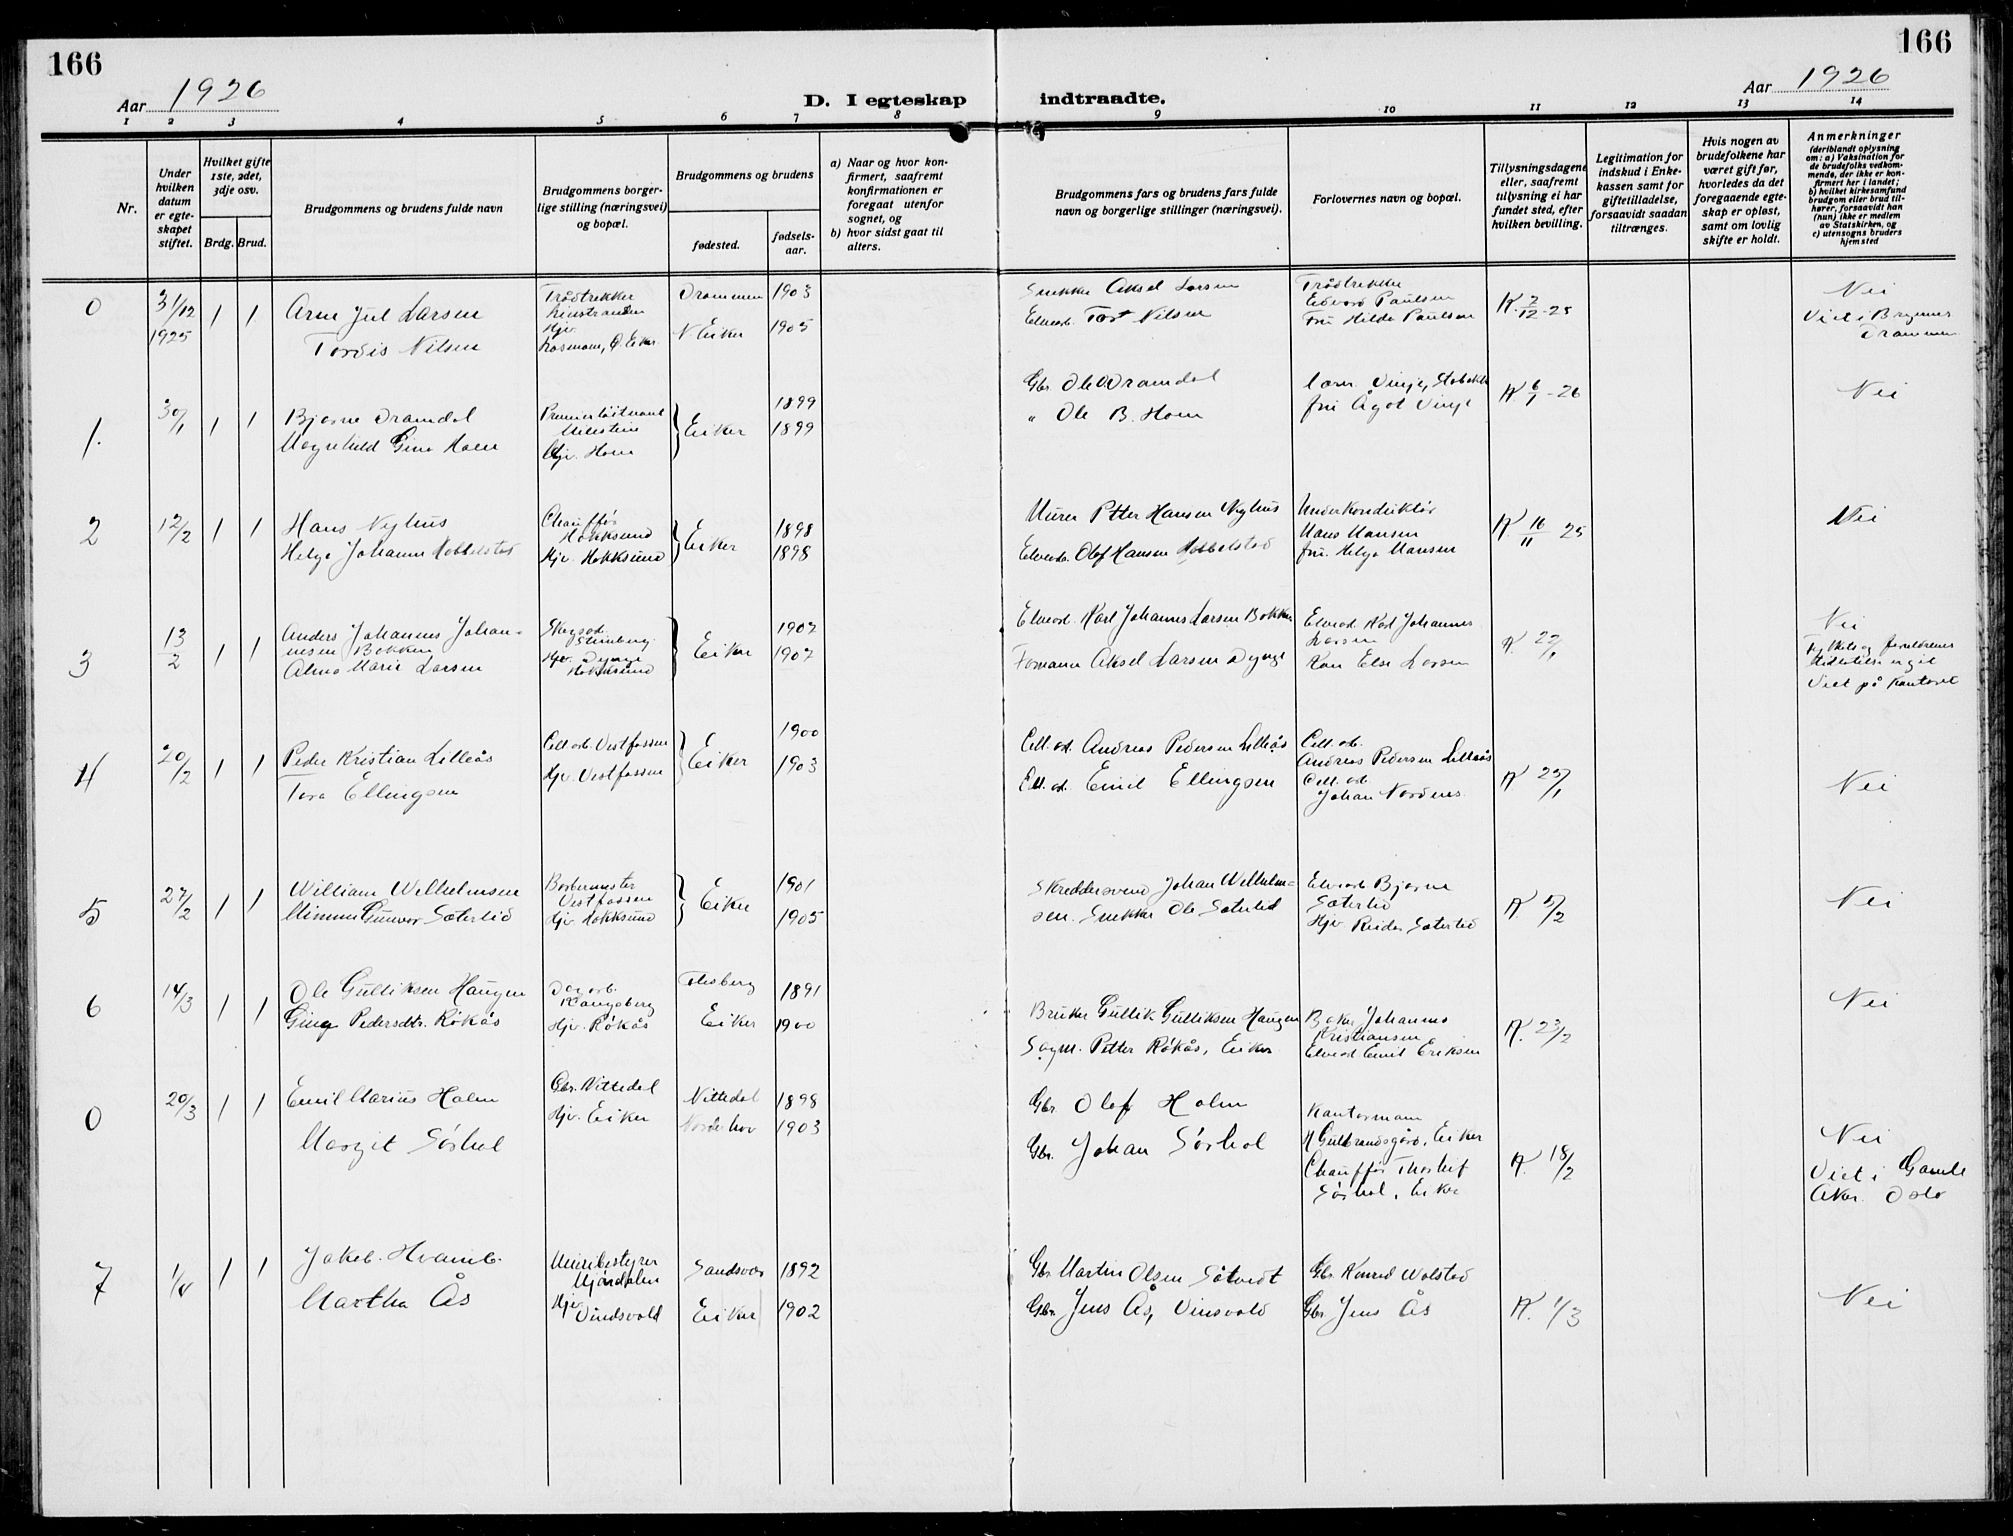 166
Aar 1926
D. I egteskap
1 2 3 4 5 6 7 8
Nr.
Under hvilken datum er egteskapet stiftet.
Hvilket gifte 1ste, 2det, 3dje osv.
Brdg. Brud.
Brudgommens og brudens fulde navn
Brudgommens borgerlige stilling (næringsvei) og bopæl.
Brudgommens og brudens
fødested.
fødselsaar.
a) Naar og hvor konfirmert, saafremt konfirmationen er foregaat utenfor sognet, og
b) hvor sidst gaat til alters.
166
Aar 1926
indtraadte.
9 10 11 12 13 14
Brudgommens fars og brudens fars fulde navn og borgerlige stillinger (næringsvei).
Forlovernes navn og bopæl.
Tillysningsdagene eller, saafremt tillysning ei har fundet sted, efter hvilken bevilling.
Legitimation for indskud i Enkekassen samt for giftetilladelse, forsaavidt saadan tiltrænges.
Hvis nogen av brudefolkene har været gift før, hvorledes da det foregaaende egteskap er opløst, samt om lovlig skifte er holdt.
Anmerkninger
(deriblandt oplysning om: a) Vaksination for de brudefolks vedkommende, der ikke er konfirmert her i landet; b) hvilket kirkesamfund brudgom eller brud tilhører, forsaavidt han (hun) ikke er medlem av Statskirken, og c) utensogns bruders hjemsted
0 31/12 1925 1 1
Arne Jul Larsen
Tordis Nilsen
Trådtrekker
Hjv.
Drammen 1903
N Eiker 1905
Snekker Aksel Larsen
Elvearb. Nilsen
Trådtrekker
Edvard Paulsen
Fru Hilda Paulsen
K. 2/12-25
Nei
Viet i Bragernes
Drammen
1. 30/1 1 1
Bjarne Dramdal
Magnhild Gina Horn
Premierløitnant
Milestein
Hjv. Horn
Eiker 1899
1899
Gbr. Ole Dramdal
" Ole B. Horn
Vinje, Stabekk
fru Ågot Vinje
K. 6/1-26
Nei
2 12/2 1 1
Hans Nyhus
Helga Johanne Hobbelstad
Chauffør
Hokksund
Hjv. Hokksund
Eiker 1898
1898
Murer Petter Hansen Nyhus
Elvearb. Olof Hansen Hobbelstad
Underkonduktør
Hans Hansen
fru. Helga Hansen
K 16/11 25
Nei
3 13/2 1 1
Anders Johannes Johan-
nesen Bakken
Alma Marie Larsen
Skogsarb.
Stenberg.
Hjv. Dynge
Hokksund
Eiker 1907
1907
Elvearb. Karl Johannes Larsen Bakken
Formann Aksel Larsen Dynge
Elvearb Karl Johannes
Larsen
Kone Else Larsen
K. 27/1
Nei
Fylkets og foreldrenes
tilladelse avgit
Viet på kontoret
4 20/2 1 1
Peder Kristian Lilleås
Tora Ellingsen
Cell. arb. Vestfossen
Hjv. Vestfossen
Eiker 1900
1903
Cell. arb. Andreas Pedersen Lilleås
Cell. arb. Emil Ellingsen
Cell. arb.
Andreas Pedersen Lilleås
Cell. arb.
Johan Nordnes.
K 25/1
Nei
5 27/2 1 1
William Wilhelmsen
Gunvor Sæterlid
Barbermester
Vestfossen
Hjv. Hokksund
Eiker 1901
1905
Skreddersvend Johan Wilhelm-
sen. Snekker Ole Sæterlid
Elvearb Bjarne
Sæterlid
Hjv Reidar Sæterlid
K 5/2
Nei
6 14/3 1 1
Ole Gulliksen Haugen
Gina Pedersdtr. Røkås
Dagarb.
Kongsberg
Hjv. Røkås
Flesberg 1891
Eiker 1900
Bruker Gullik Gulliksen Haugen
Sagm. Petter Røkås, Eiker
Baker Johannes
Kristiansen
Elvearb Emil Eriksen
K. 23/2
Nei
0 20/3 1 1
Emil Marius Holm
Margit Sørhol
Gbr. Nittedal
Hjv. Eiker
Nittedal 1898
Norderhov 1903
Gbr Olof Holm
Gbr. Johan Sørhol
Kontormann
H Gulbrandsgård, Eiker
Chauffør Thorleif
Sørhol, Eiker
K. 18/2
Nei
Viet i Gamle
Aker. Oslo
7 1/4 1 1
Jakob. Hvamb.
Martha Ås
Meieribestyrer
Mjøndalen
Hjv
Vindsvold
Sandsvær 1892
Eiker 1902
Gbr Martin Olsen Såtvedt
Gbr Jens Ås, Vinsvold
Gbr Konrad Wolstad
Gbr Jens Ås
K. 1/3
Nei